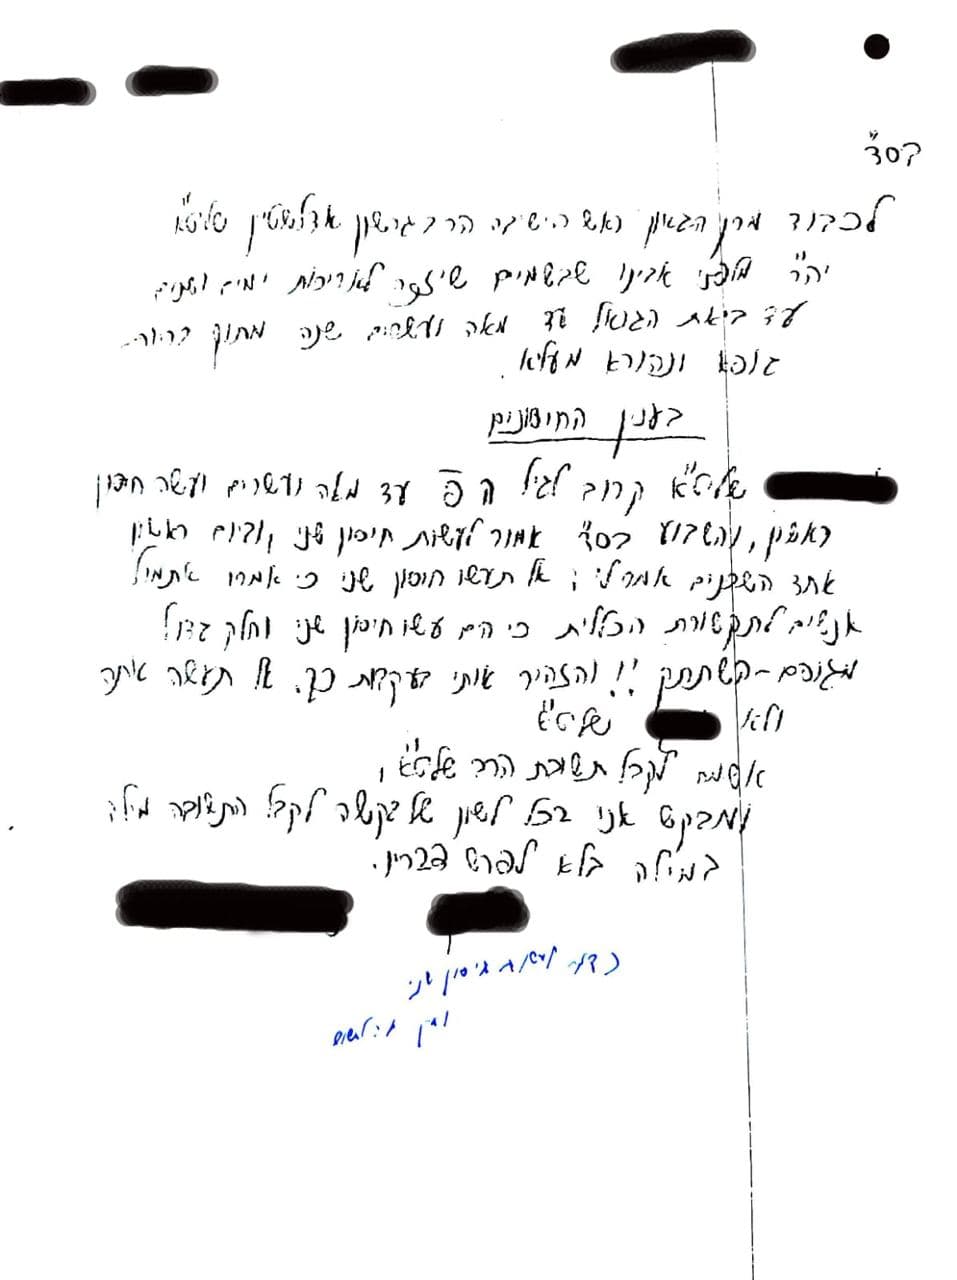 בסד"
לכבוד מרן הגאון ראש הישיבה הרב גרשון אדלשטין שליט"א
יה"ר מלפני אבינו שבשמים שיזכה לאריכות ימים ושנים
עד ביאת הגואל עד מאה ועשרים שנה מתוך בריות
גופא ונהורא מעליא.
בענין החיסונים
שליט"א קרוב לגיל פ עד מאה ועשרים ועשה חיסון
ראשון, והשבוע בסד" אמור לעשות חיסון שני, וביום ראשון
אחד השכנים אמר לי: אל תעשו חיסון שני כי אמרו אתמול
אנשים לתקשורת הכללית כי הם עשו חיסון שני וחלק גדול
מגופם - השתתק !! והזהיר אותי בעקבות כך. אל תעשה אתה
ולא שליט"א
אשמח לקבל תשובת הרב שליט"א,
ומבקש אני בכל לשון של בקשה לקבל התשובה מילה
במילה בלא לפרש דבריו.
כדאי לעשות חיסון שני
ואין לחשוש